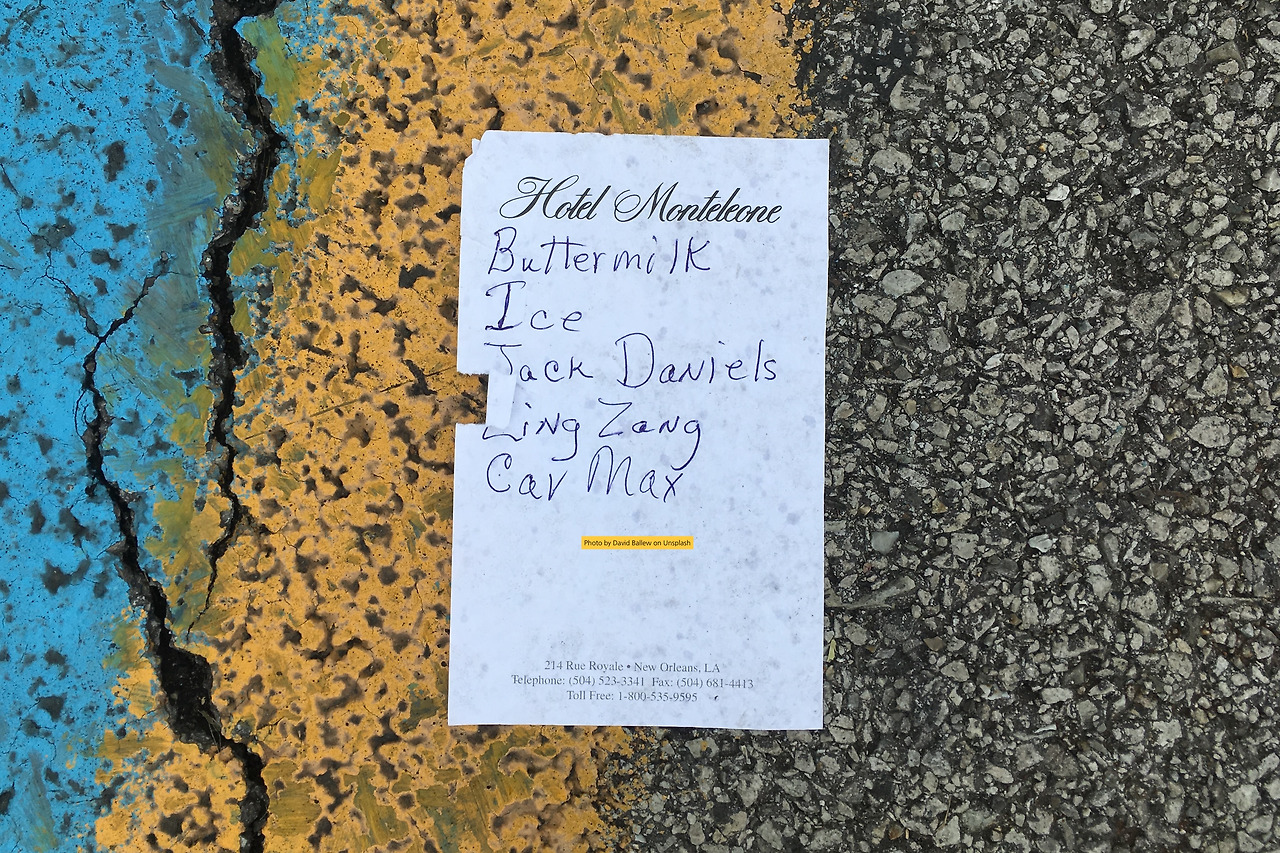 Hotel Monteleone
Buttermilk
Ice
Jack Daniels
Zing Zang
Car Max
Photo by David Ballew on Unsplash
214 Rue Royale • New Orleans, LA
Telephone: (504) 523-3341 Fax: (504) 681-4413
Toll Free: 1-800-535-9595